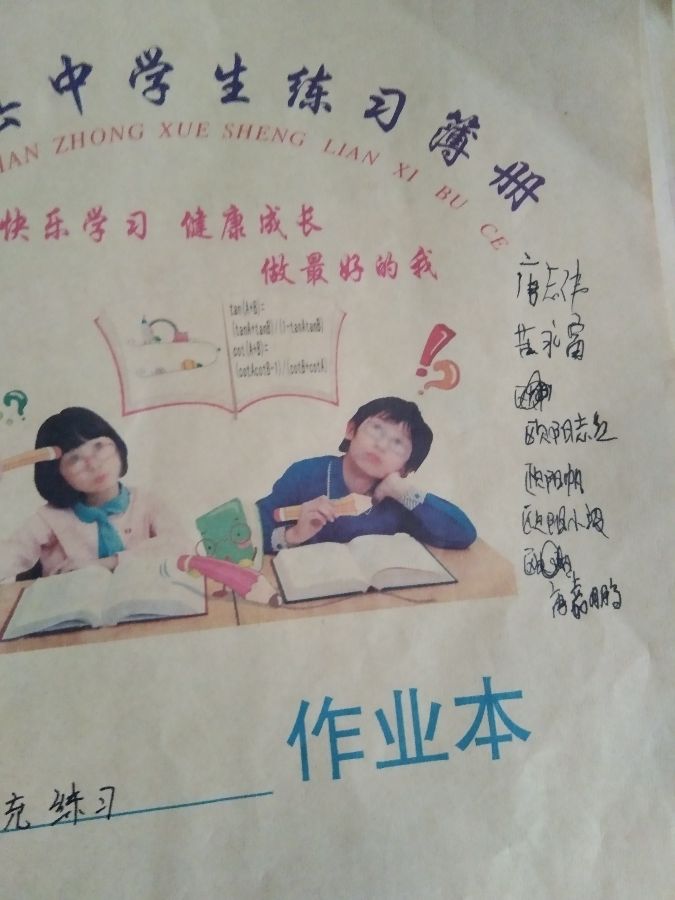 中学生练习薄册
HAN ZHONG XUE SHENG LIAN XI BU CE
快乐学习 健康成长
做最好的我
tan(A+B)=
(tanA+tanB)/(1-tanAtanB)
cot(A+B)=
(cotAcotB-1)/(cotB+cotA)
唐志伟
黄永富
欧阳志
欧阳帆
欧阳小波
唐嘉鹏
作业本
充练习